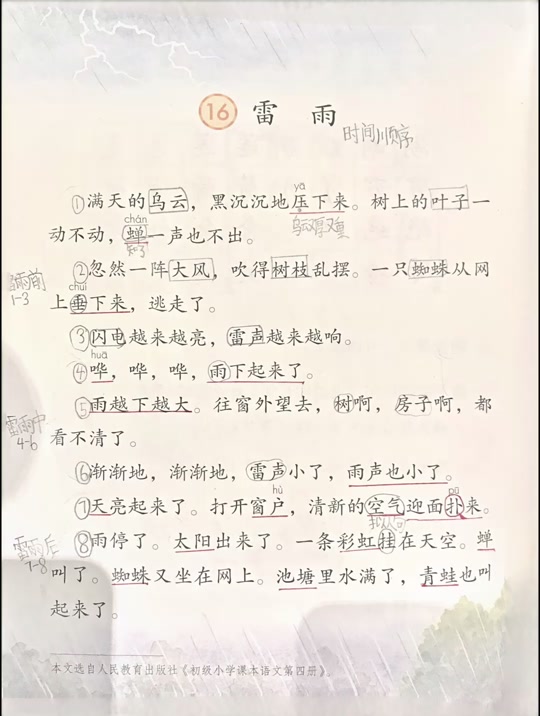 16 雷雨
时间顺序
yā
①满天的乌云，黑沉沉地压下来。树上的叶子一
chán
乌云厚又重
动不动，蝉一声也不出。
知了
②忽然一阵大风，吹得树枝乱摆。一只蜘蛛从网
雷雨前
1-3
chuí
上垂下来，逃走了。
③闪电越来越亮，雷声越来越响。
huā
④哗，哗，哗，雨下起来了。
⑤雨越下越大。往窗外望去，树啊，房子啊，都
雷雨中
4-6
看不清了。
⑥渐渐地，渐渐地，雷声小了，雨声也小了。
hù
pū
⑦天亮起来了。打开窗户，清新的空气迎面扑来。
拟人句
⑧雨停了。太阳出来了。一条彩虹挂在天空。蝉
雷雨后
7-8
叫了。蜘蛛又坐在网上。池塘里水满了，青蛙也叫
起来了。
本文选自人民教育出版社《初级小学课本语文第四册》。